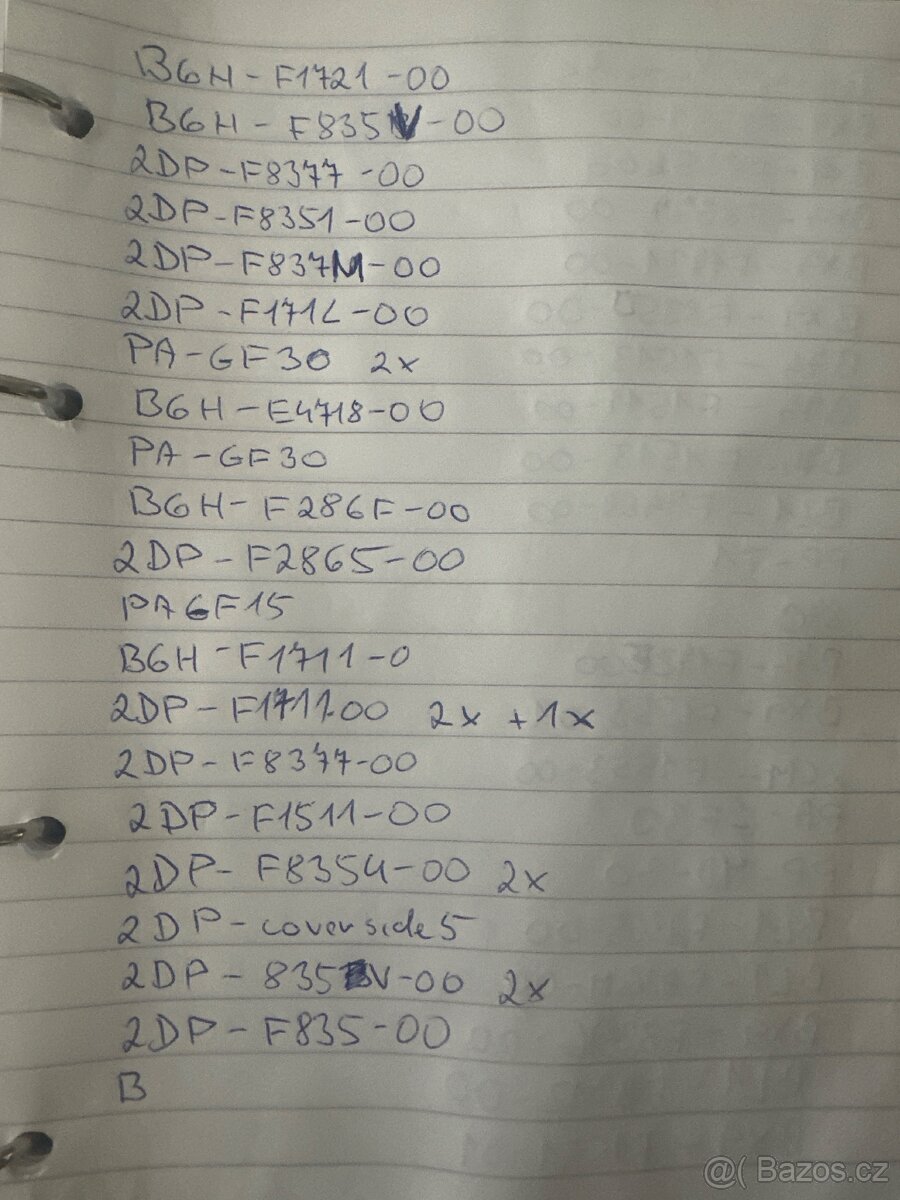 B6H-F1721-00
B6H-F835V-00
2DP-F8377-00
2DP-F8351-00
2DP-F837M-00
2DP-F171L-00
PA-GF30 2x
B6H-E4718-00
PA-GF30
B6H-F286F-00
2DP-F2865-00
PAGF15
B6H-F1711-0
2DP-F1711-00 2x +1x
2DP-F8377-00
2DP-F1511-00
2DP-F835U-00 2x
2DP-cover side 5
2DP-835V-00 2x
2DP-F835-00
B
@( Bazos.cz